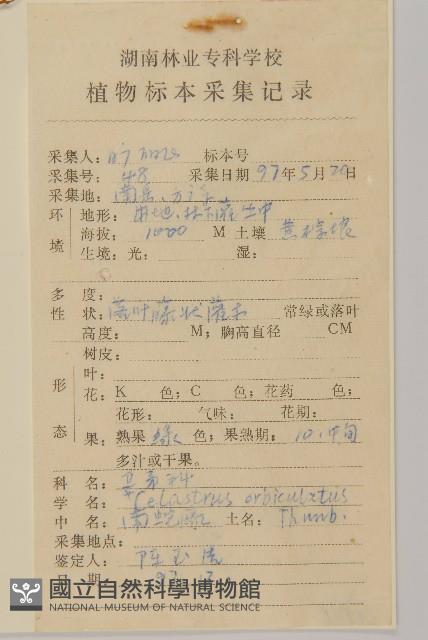 湖南林业专科学校
植物标本采集记录
采集人： 标本号
采集号： 48 采集日期 97年5月29日
采集地： 南岳、方广
环境 地形： 林下灌丛中
海拔： 1000 M 土壤 黄棕壤
生境：光： 湿：
多度：
性状： 落叶藤状灌木 常绿或落叶
高度： M；胸高直径 CM
形态 树皮：
叶：
花：K 色；C 色；花药 色；
花形： 气味： 花期：
果：熟果 绿 色；果熟期： 10.中旬
多汁或干果。
科名： 卫矛科
学名： Celastrus orbiculatus
中名： 南蛇藤 土名： Thunb.
采集地点：
鉴定人：
日期：
國立自然科學博物館
NATIONAL MUSEUM OF NATURAL SCIENCE